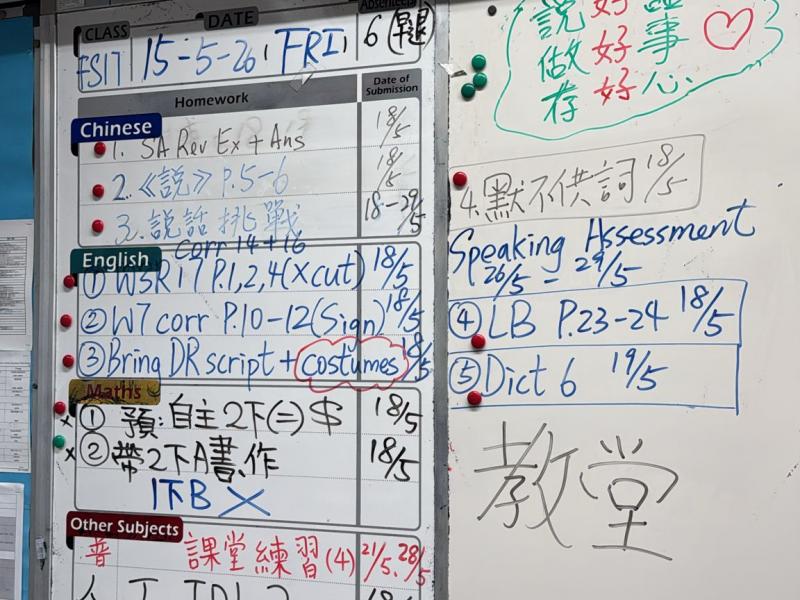 CLASS DATE Absentees
15-5-26, FRI, 6 (早退)
Homework Date of Submission
Chinese
1. SA Rev Ex + Ans 18/5
2.《說》P.5-6 18/5
3. 說話挑戰 18-29/5
English corr 14+16
① W3R17 P.1,2,4(Xcut) 18/5
② W7 corr P.10-12(Sign) 18/5
③ Bring DR script + costumes 18/5
Maths
① 預:自主2下(二) $ 18/5
② 帶2下A書、作 18/5
1下B X
Other Subjects
普 課堂練習(4) 21/5、28/5
說好
做好事
存好心
4.默不供詞 18/5
Speaking Assessment
26/5 - 29/5
④ LB P.23-24 18/5
⑤ Dict 6 19/5
教堂